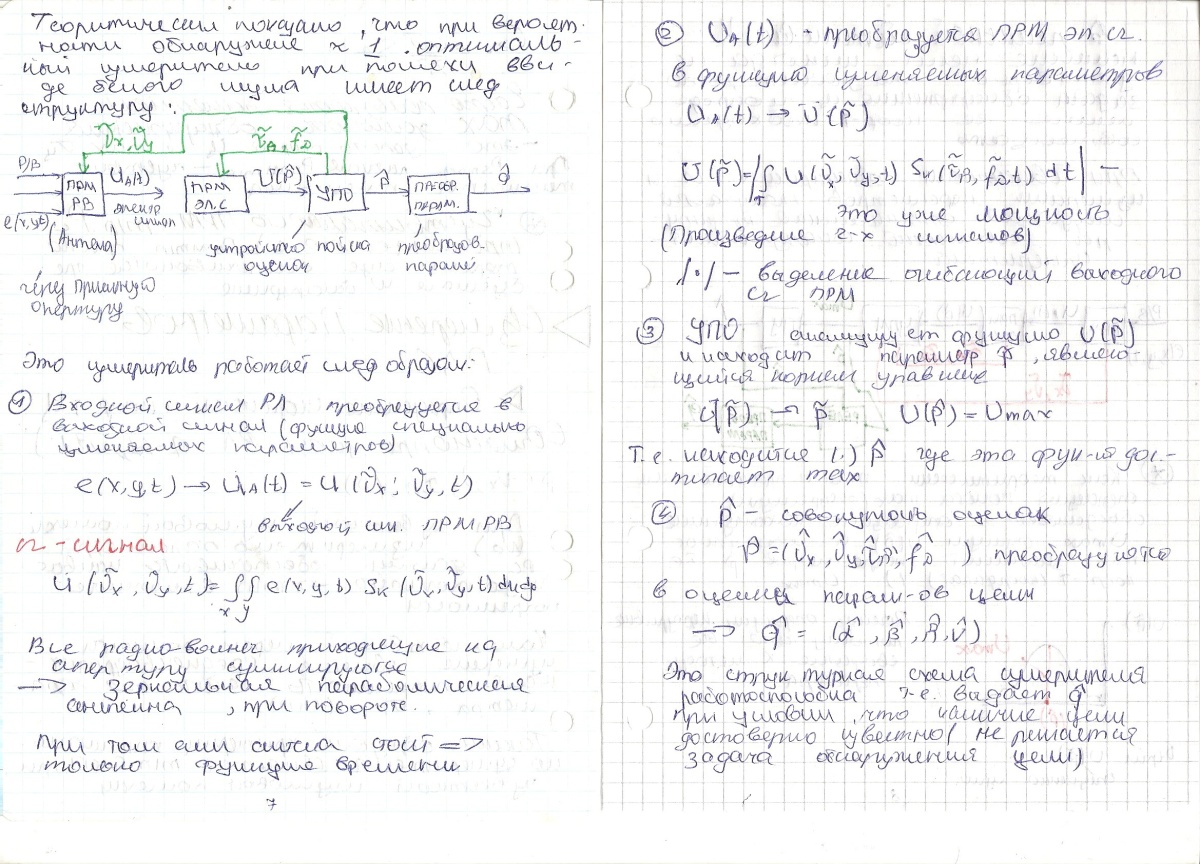 Теоритически показано, что при вероят-
ности обнаружене ≈ 1 оптималь-
ный измеритель при помехи вви-
де белого шума имеет след
структуру:
ν̃x, ν̃y
τ̃R, f̃D
Р/В
ПРМ РВ
UA(t)
ПРМ ЭЛ.С
U(p̃)
УПО
p̂
ПРЕОБР. ПАРАМ.
q̂
e(x,y,t)
(Антена)
электр сигнал
устройство поиска оценки
преобразов. парам
через приемную
апертуру
Это измеритель работает след образом:
① Входной сигнал РЛ преобразуется в
выходной сигнал (функцию специально
изменяемых параметров)
e(x,y,t) → UA(t) = U(ν̃x, ν̃y, t)
выходной сигн. ПРМ РВ
сг - сигнал
U(ν̃x, ν̃y, t) = ∫∫ e(x,y,t) Sк(ν̃x, ν̃y, t) dx dy
x y
Все радио-волны приходящие на
апертуру суммируются
→ зеркальная параболическая
антенна, при повороте.
При том сигнала стоит ⇒
только функцие времени
7
② UA(t) - преобразуется ПРМ эл. сг.
в функцию изменяемых параметров
UA(t) → U(p̃)
U(p̃) = |∫ U(ν̃x, ν̃y, t) Sк(τ̃R, f̃D, t) dt| —
T
Это уже мощность
(Произведние 2-х сигналов)
|·| — выделение огибающий выходного
сг ПРМ
③ УПО анализирует функцию U(p̃)
и находит параметр p̂, являю-
щийся корнем уравнение
U(p̃) → p̂ U(p̂) = Umax
Т.е. находится (·) p̂ где эта функ-ия дос-
тигает max
④ p̂ - совокупность оценок
p̂ = (ν̂x, ν̂y, τ̂R, f̂D) преобразуются
в оценки парам-ов цели
→ q̂ = (α̂, β̂, R̂, V̂)
Это структурная схема измерителя
работоспособна т.е. выдает q̂
при условии, что наличие цели
достоверно известно (не решается
задача обнаружения цели)